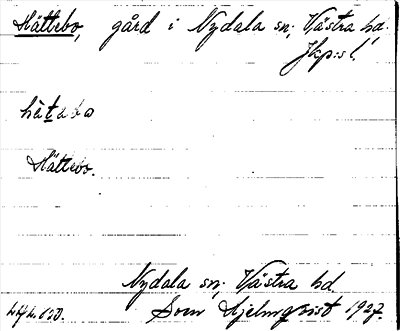 Hättebo, gård i Nydala sn; Västra hd.
Jkp:s l.
hätabo
Hättebo.
Nydala sn; Västra hd.
Sven Hjelmqvist 1927.